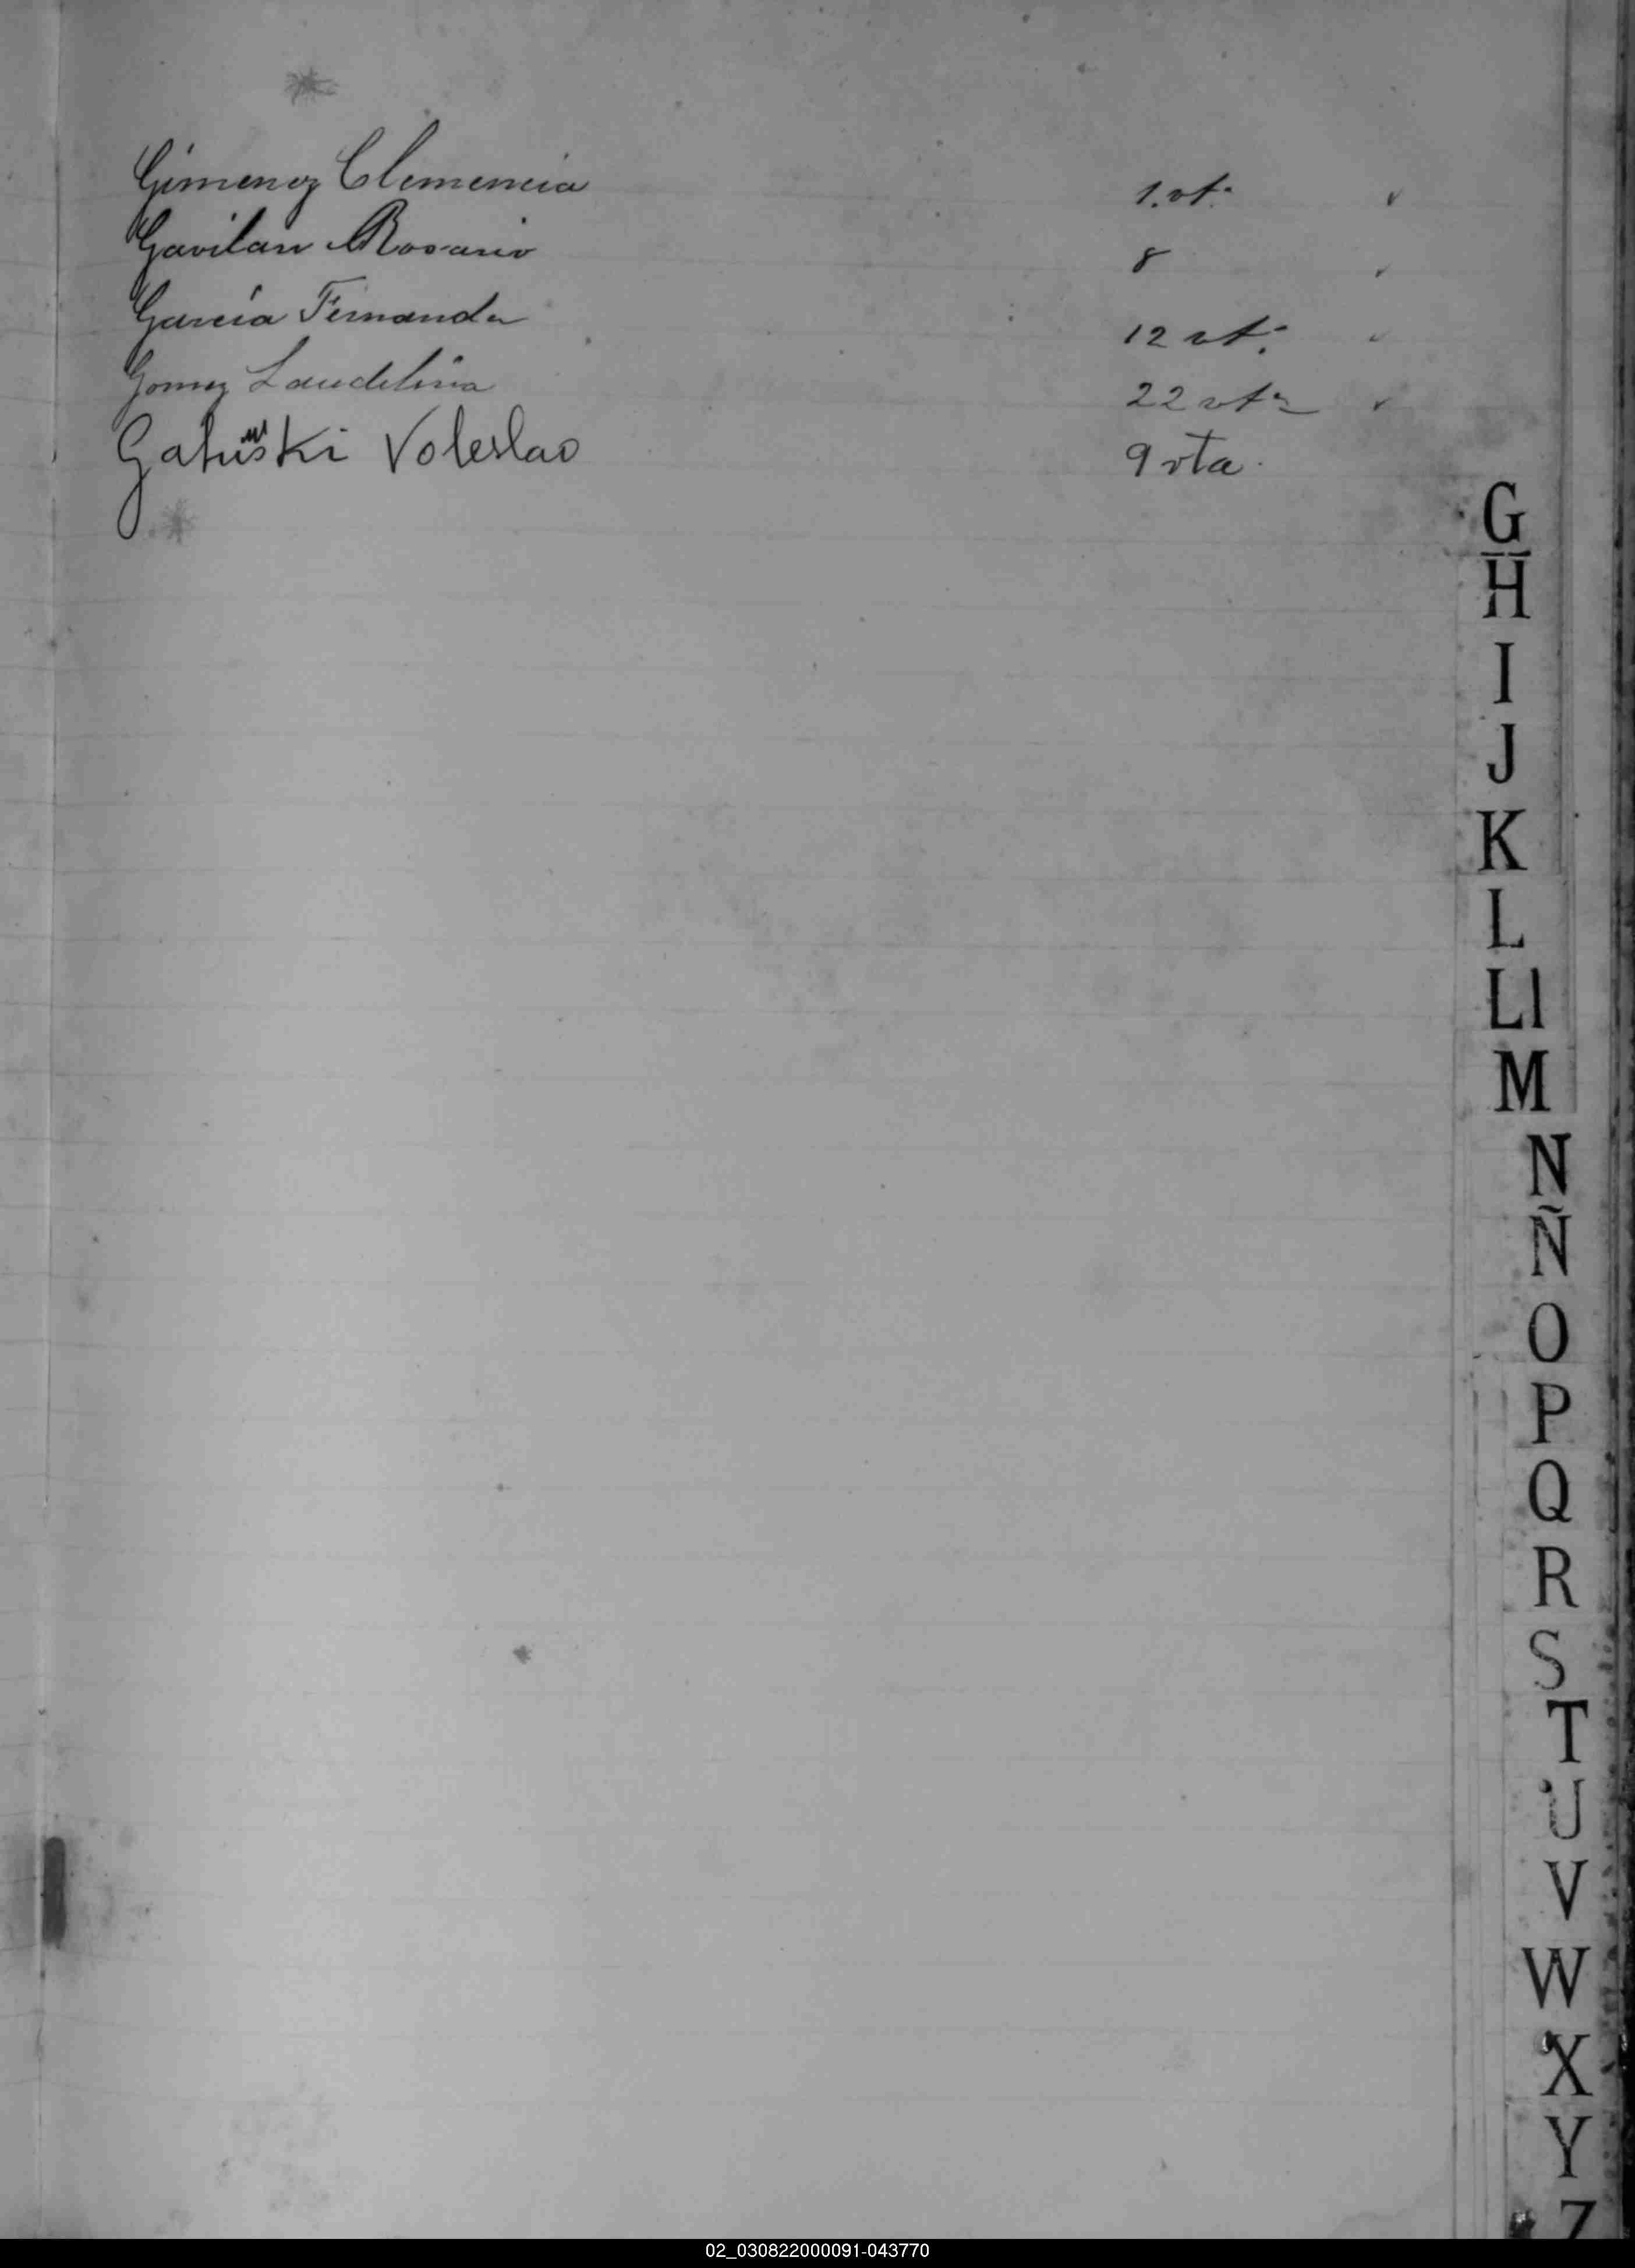 Gimenez Clemencia 1. vta. ✓
Gavilan Rosario 8 ✓
Garcia Fernanda 12 vta. ✓
Gomez Laudelina 22 vta ✓
Voleslao 9 vta.
G
H
I
J
K
L
Ll
M
N
Ñ
O
P
Q
R
S
T
U
V
W
X
Y
Z
02_030822000091-043770